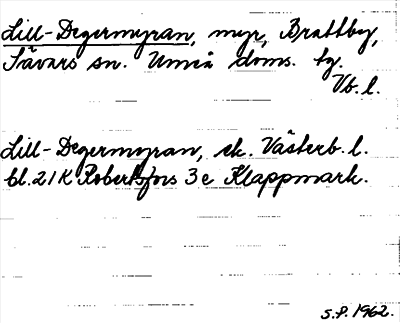 Lill-Degermyran, myr, Brattby,
Sävars sn. Umeå doms. tg.
Vb. l.
Lill-Degermyran, ek. Västerb. l.
bl. 21K Robertsfors 3c Klappmark.
S.P. 1962.